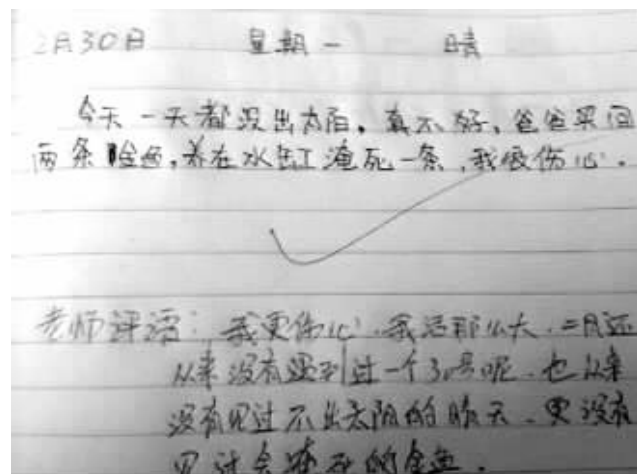 2月30日 星期一 晴
今天一天都没出太阳，真不好，爸爸买回
两条金鱼，养在水缸淹死一条，我很伤心。
老师评语：我更伤心，我活那么大，二月还
从来没有遇到过一个30号呢，也从来
没有见过不出太阳的晴天，更没有
见过会淹死的金鱼.